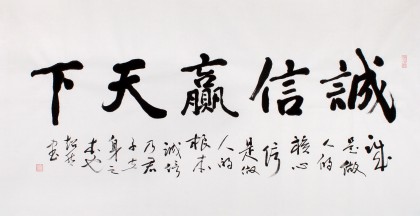 誠信贏天下
诚
是做
人的
核心
信
是做
人的
根本
誠信
乃君
子立
身之
本也
書